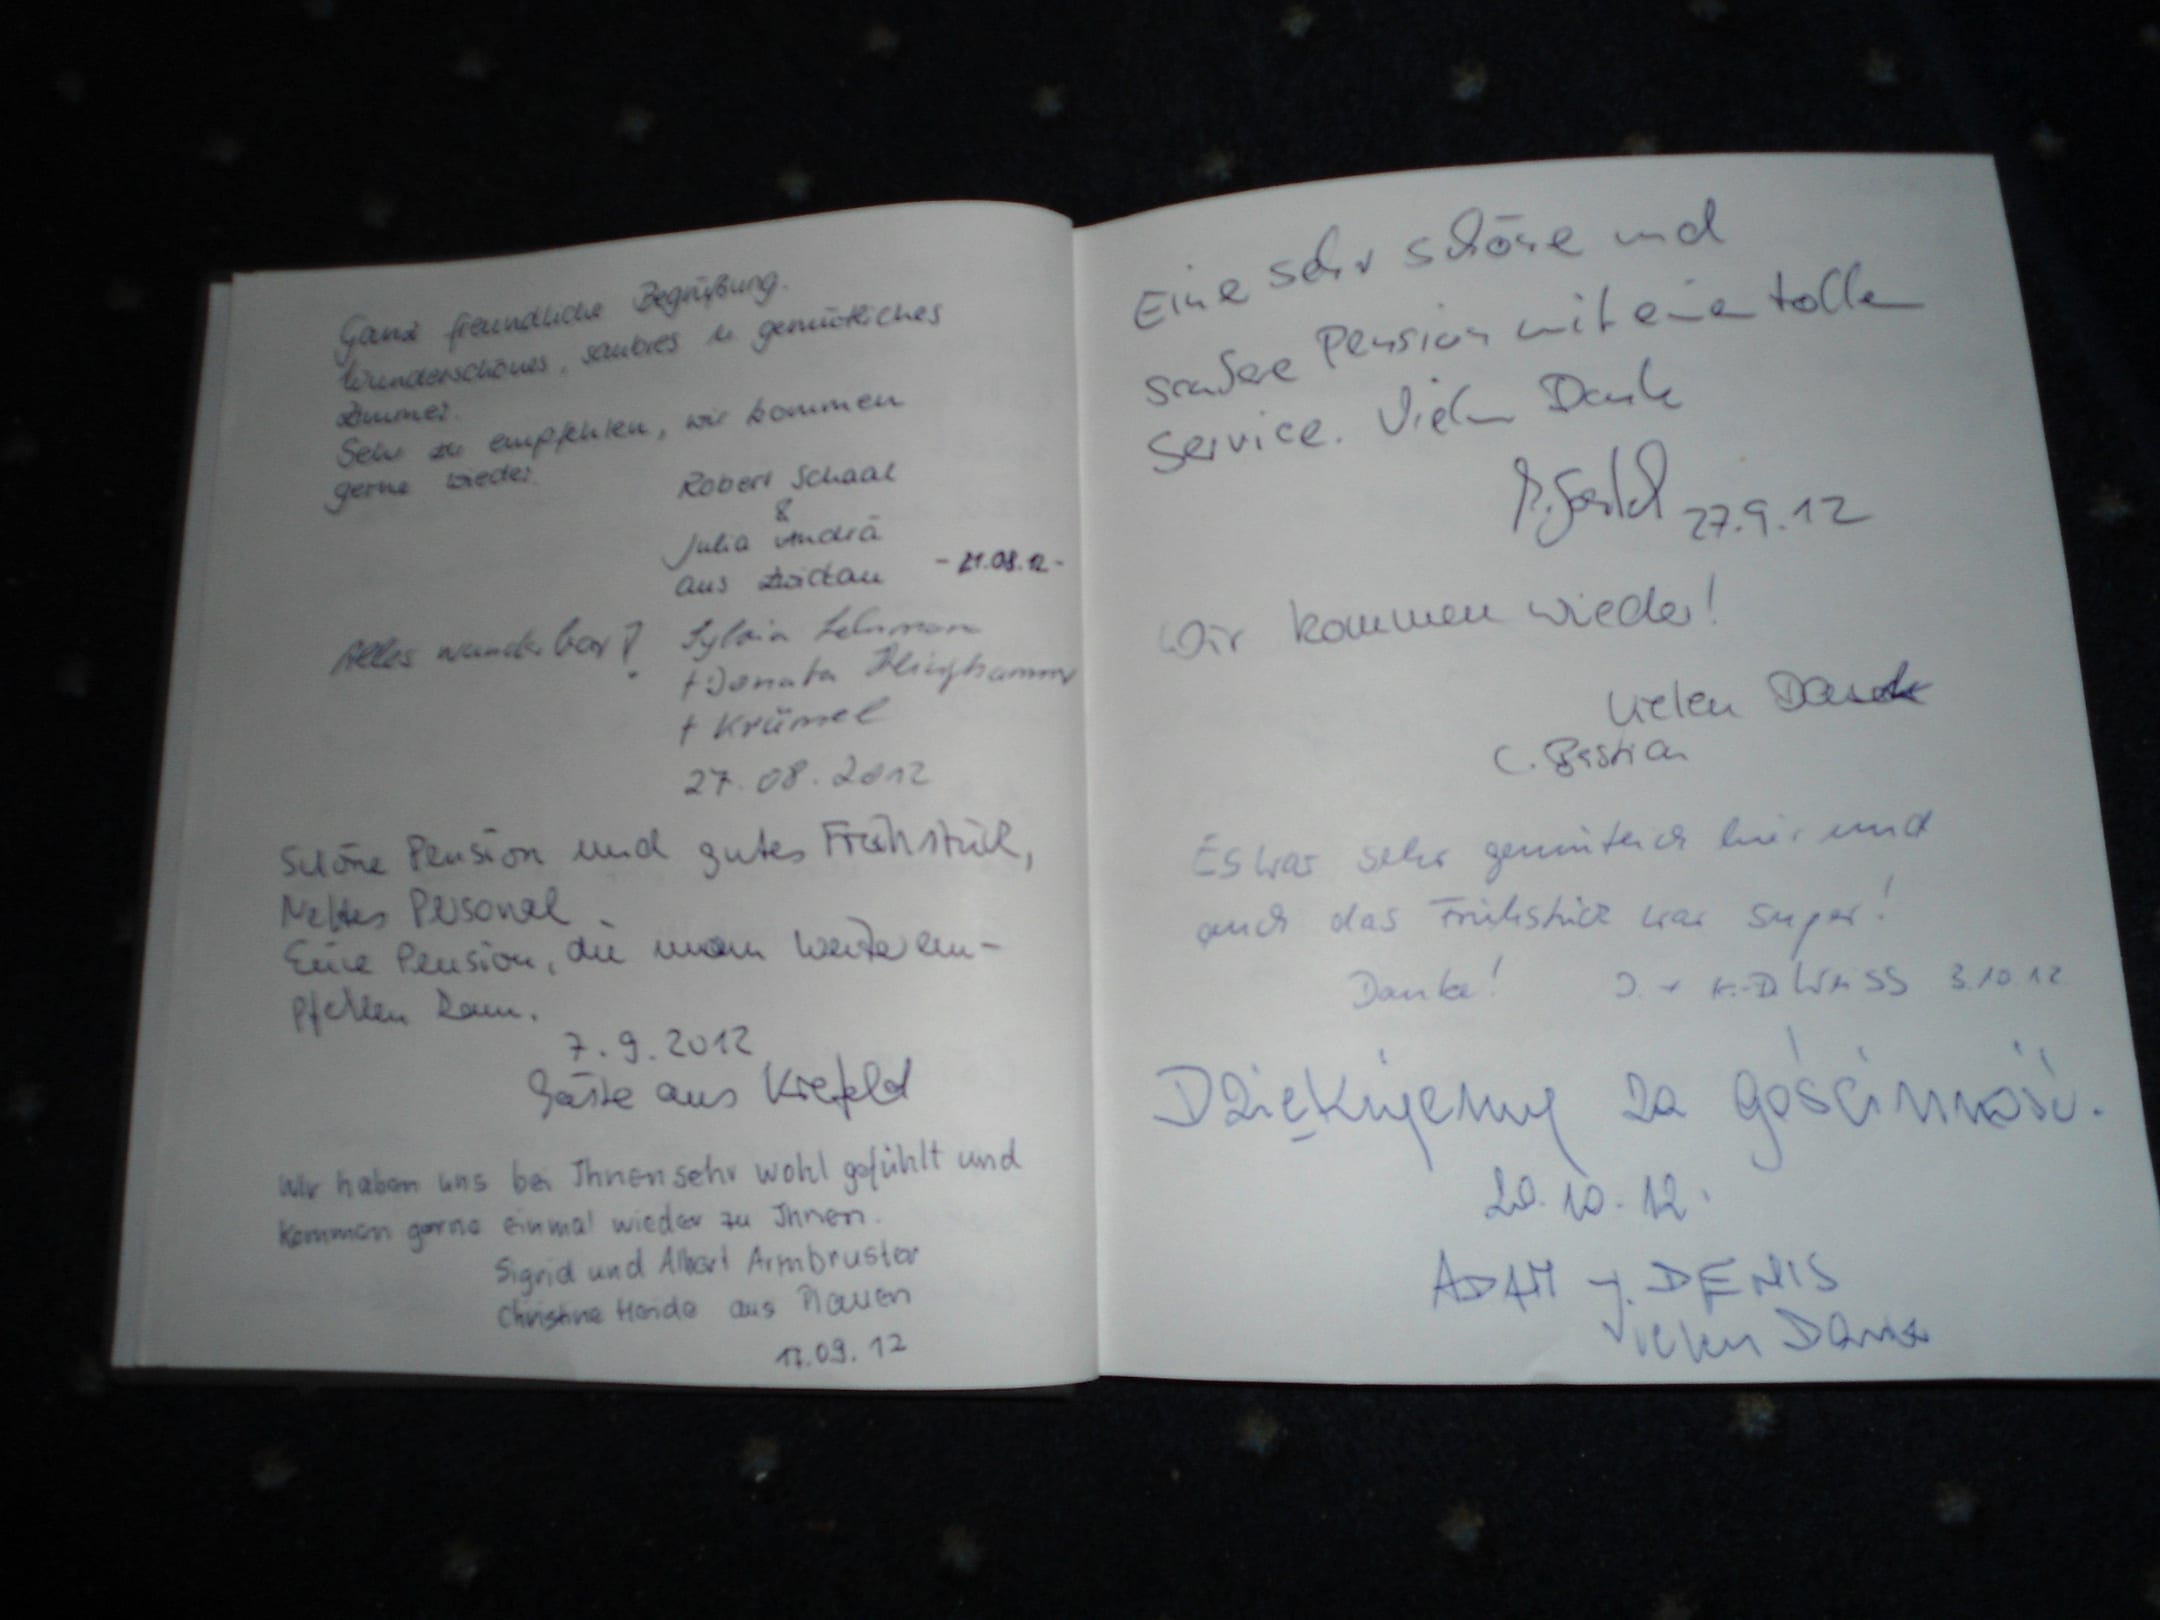 Ganz freundliche Begrüßung.
Wunderschönes, saubres u gemütliches
Zimmer.
Sehr zu empfehlen, wir kommen
gerne wieder.
Robert Schaal
&
Julia Andrä
aus Zwickau -21.08.12-
Alles wunderbar! Sylvia Lehmann
+ Donata Klinghammer
+ Krümel
27.08.2012
Schöne Pension und gutes Frühstück,
Nettes Personal.
Eine Pension, die man weiterem-
pfehlen kann.
7.9.2012
Gäste aus Krefeld
Wir haben uns bei Ihnen sehr wohl gefühlt und
kommen gerne einmal wieder zu Ihnen.
Sigrid und Albert Armbruster
Christine Heide aus Plauen
17.09.12
Eine sehr schöne und
saubere Pension mit einen tollen
Service. Vielen Dank
27.9.12
Wir kommen wieder!
Vielen Dank
C. Bastian
Es war sehr gemütlich hier und
auch das Frühstück war super!
Danke! 3.10.12
Dziękujemy za gościnność.
20.10.12.
ADAM y. DENIS
Vielen Dank